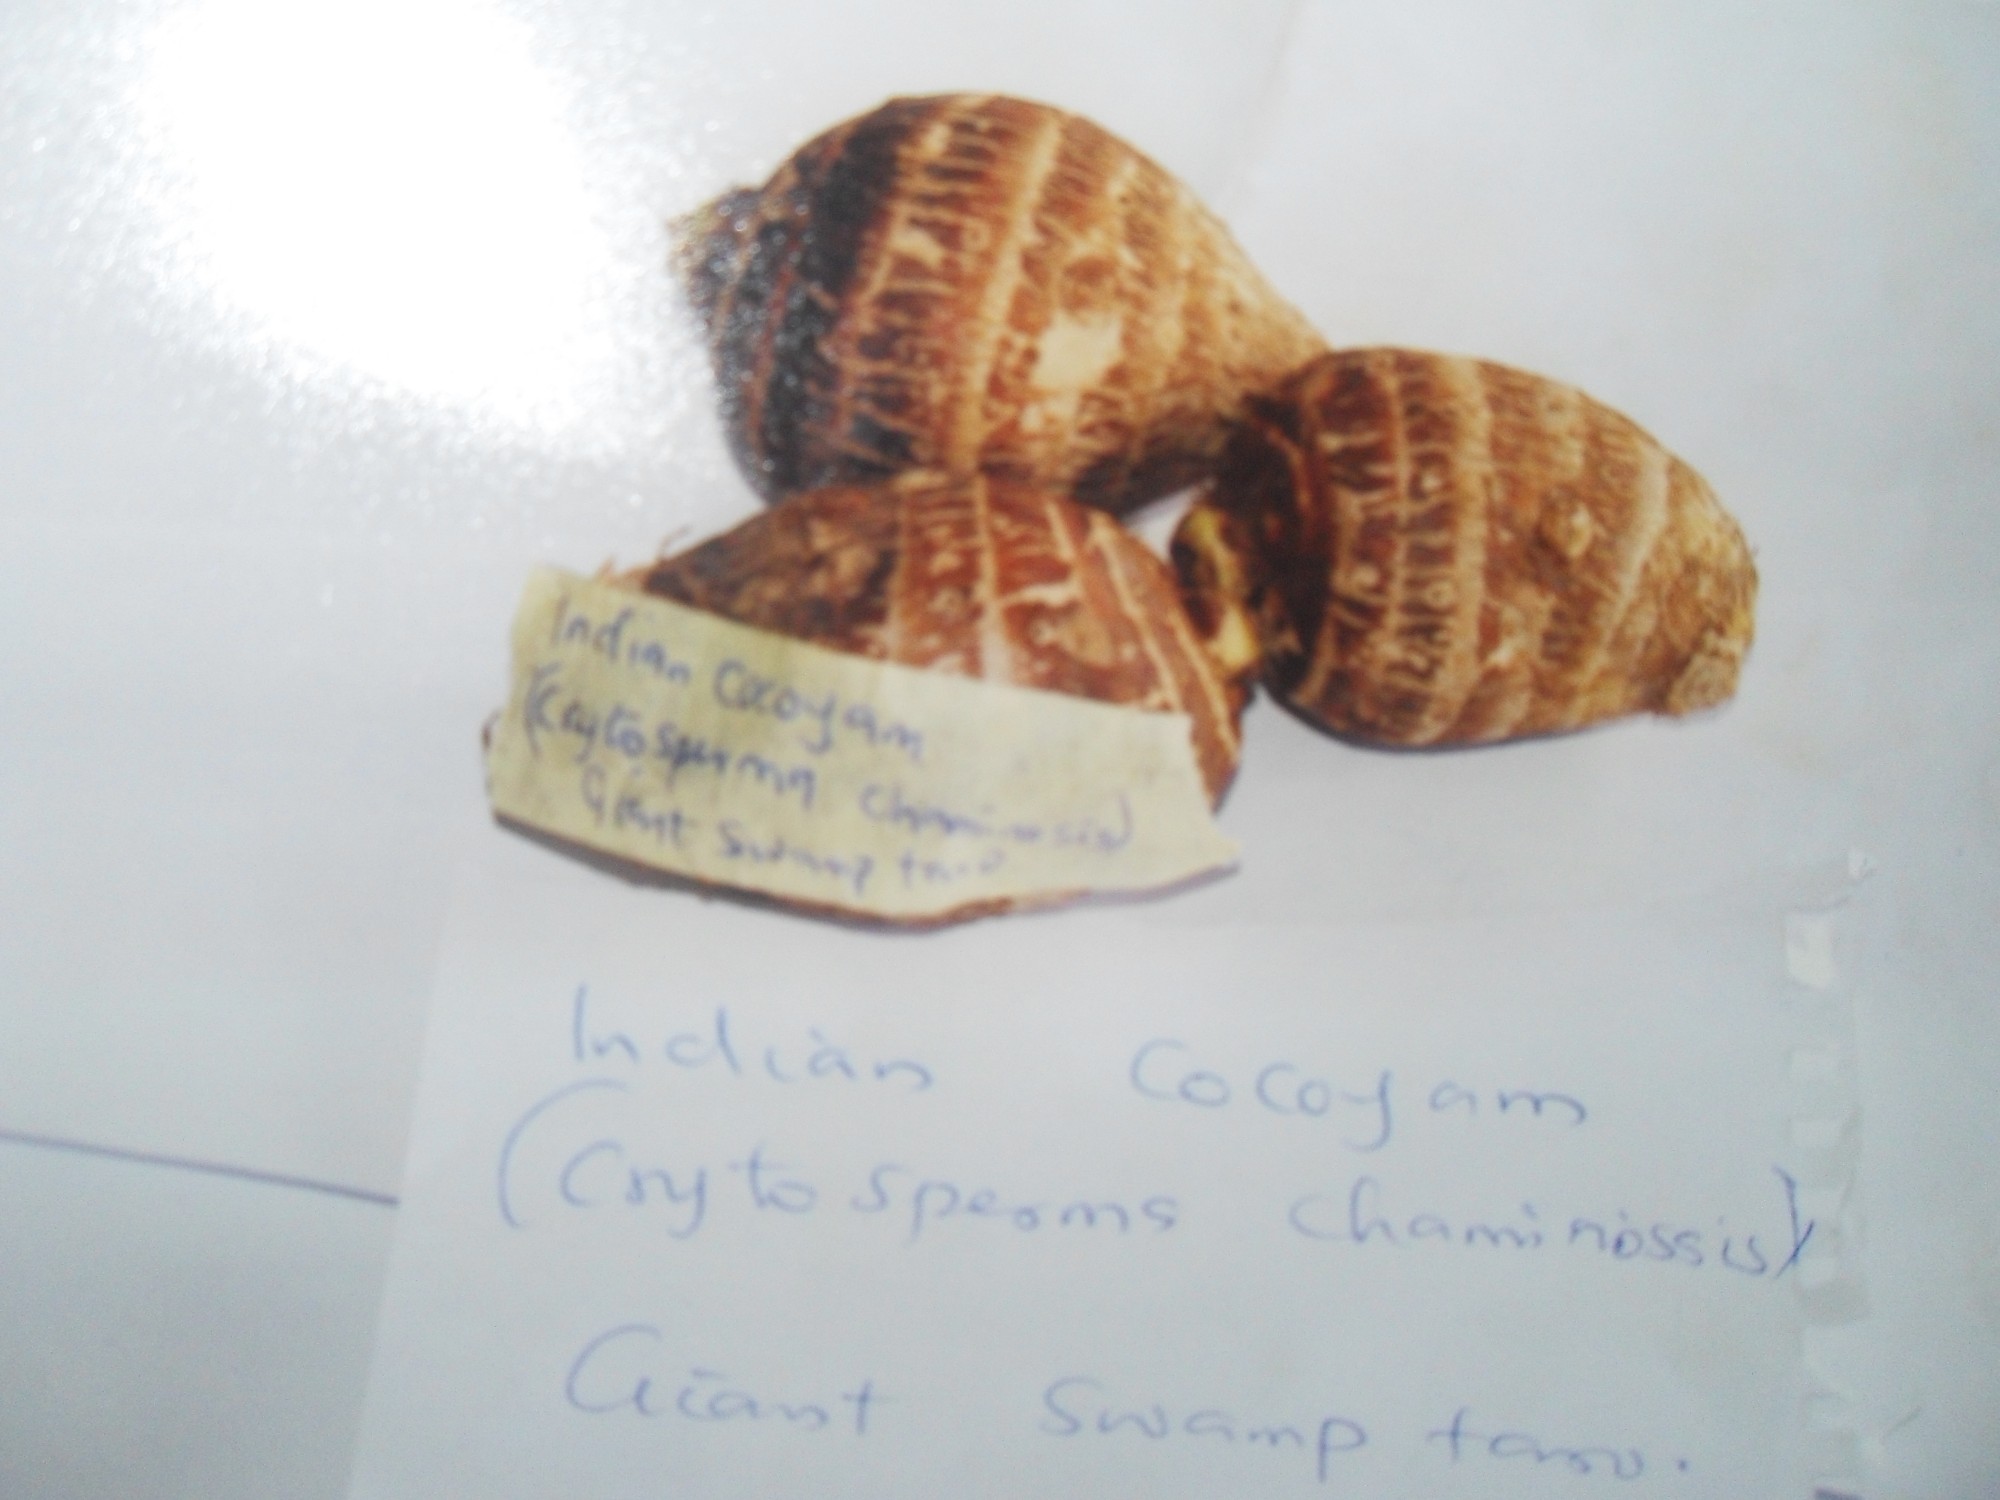 Indian Cocoyam
(Crytosperma chaminosis)
Giant Swamp taro
Indian Cocoyam
(Crytosperma chaminossis)
Giant Swamp taro.